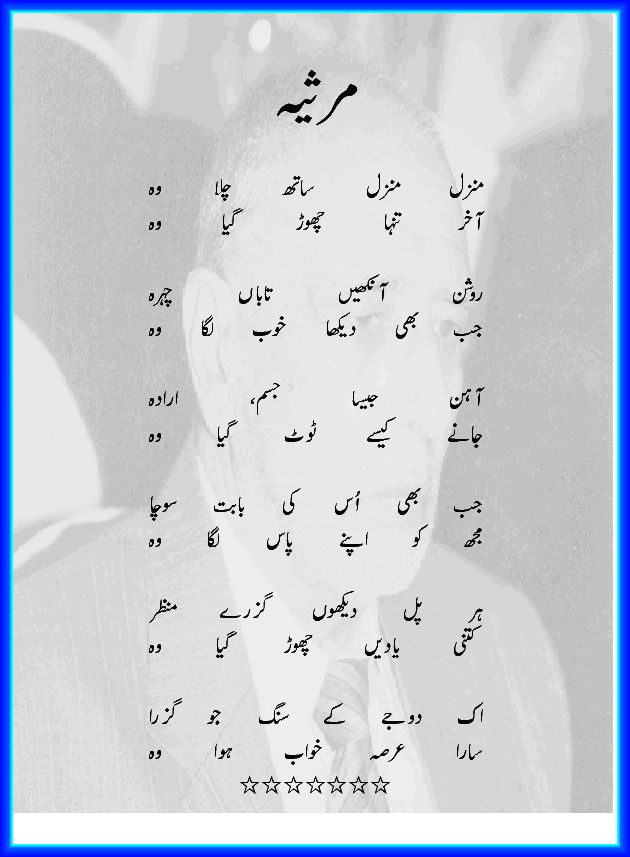 مرثیہ
منزل منزل ساتھ چلا وہ
آخر تنہا چھوڑ گیا وہ
روشن آنکھیں تاباں چہرہ
جب بھی دیکھا خوب لگا وہ
آہن جیسا جسم، ارادہ
جانے کیسے ٹوٹ گیا وہ
جب بھی اُس کی بابت سوچا
مجھ کو اپنے پاس لگا وہ
ہر پل دیکھوں گزرے منظر
کتنی یادیں چھوڑ گیا وہ
اک دوجے کے سنگ جو گزرا
سارا عرصہ خواب ہوا وہ
☆☆☆☆☆☆☆